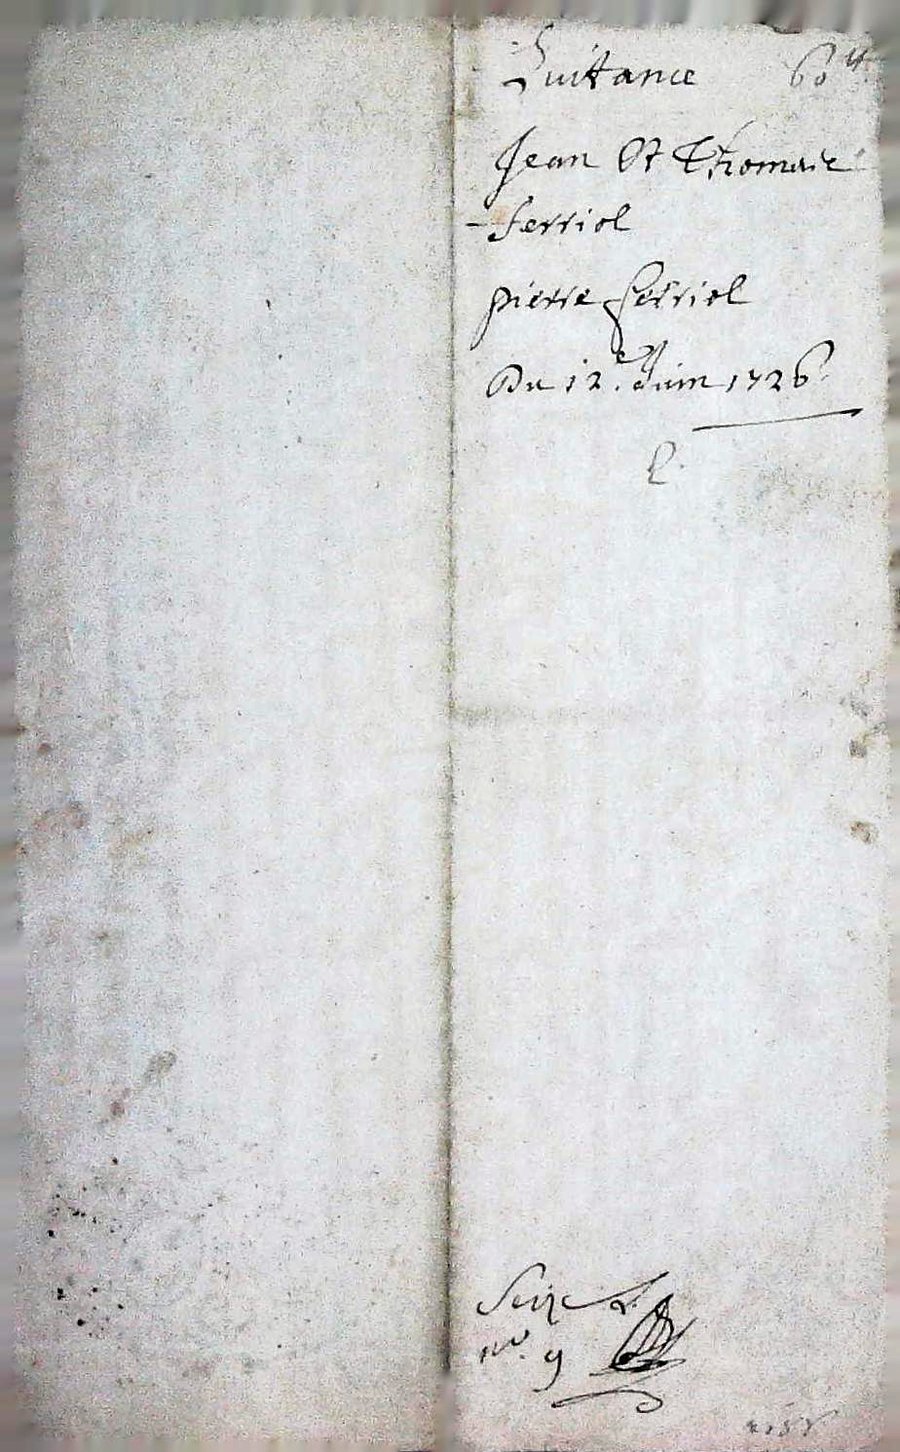 Quittance 60 ₶
Jean Et Thomaie
Ferriol
pierre ferriol
Du 12.e Juin 1726
Seize
no. 9